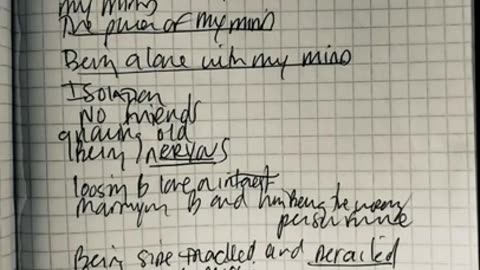 my mind
The power of my mind
Being alone with my mind
Isolation
No friends
growing old
(Being) nervous
loosing b love
marrying B and him being the wrong
person
Being side tracked and derailed